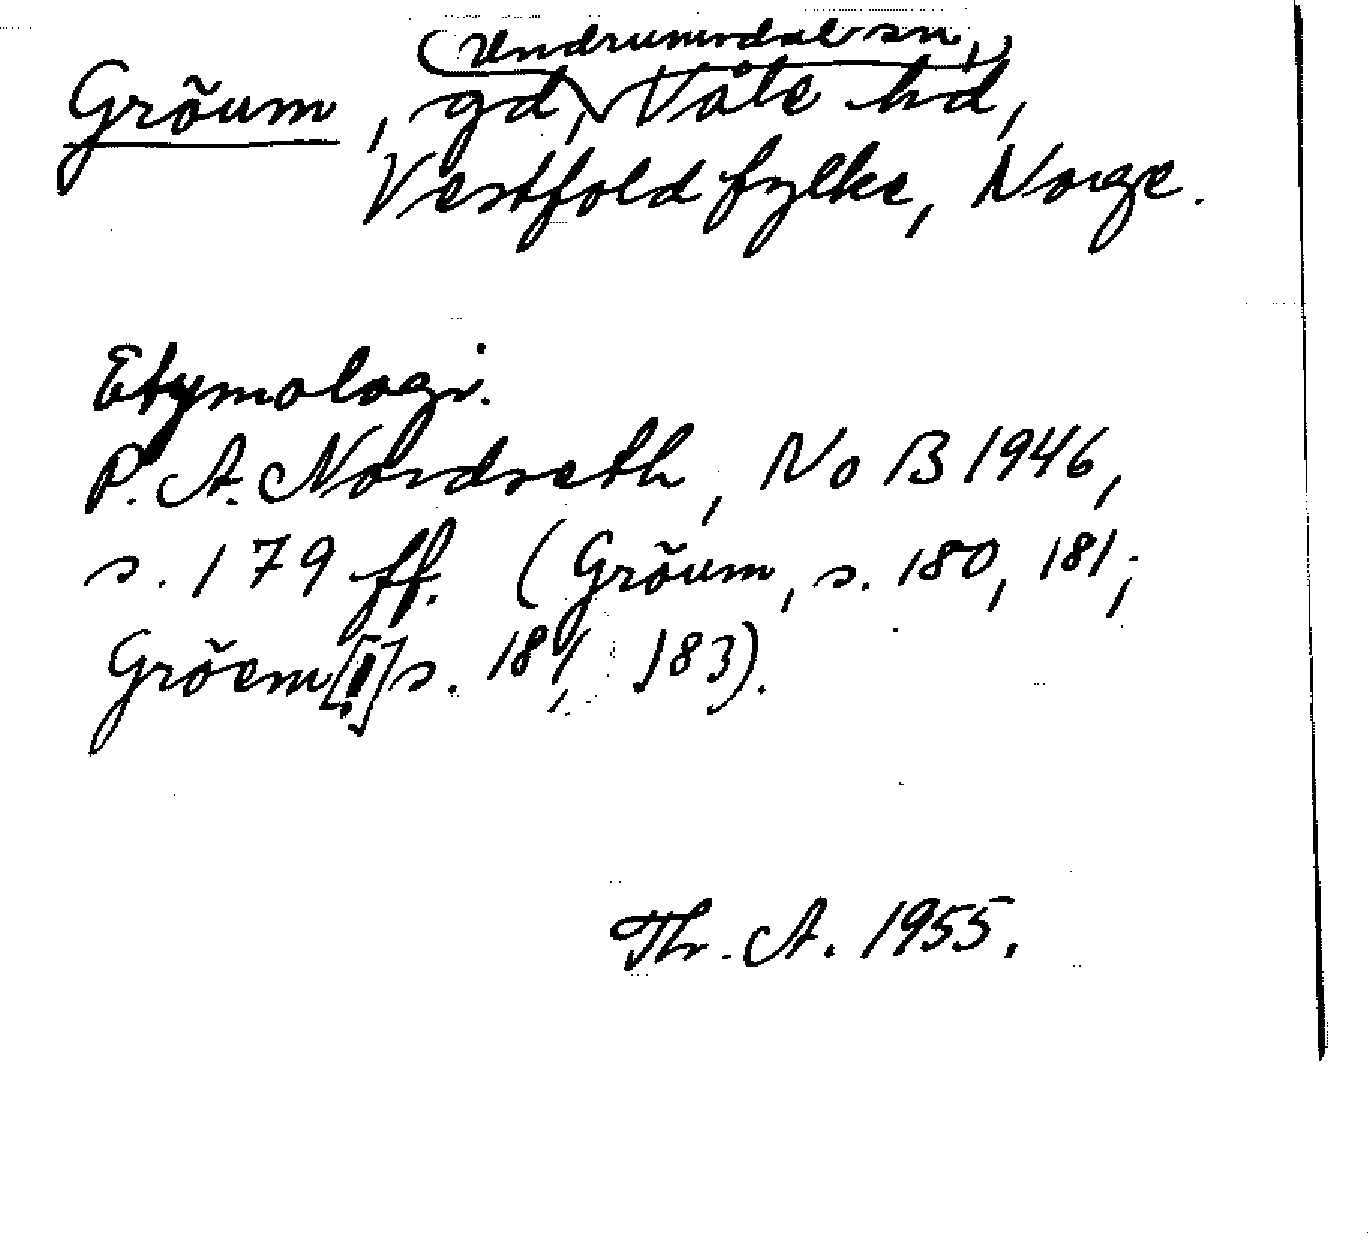 Undrumsdal sn,
Grõum, gd, Våle hd,
Vestfold fylke, Norge.
Etymologi.
P. A. Nordseth, NoB 1946,
s. 179 ff. (Grõum, s. 180, 181;
Grõem [!] s. 181, 183).
Th. A. 1955.